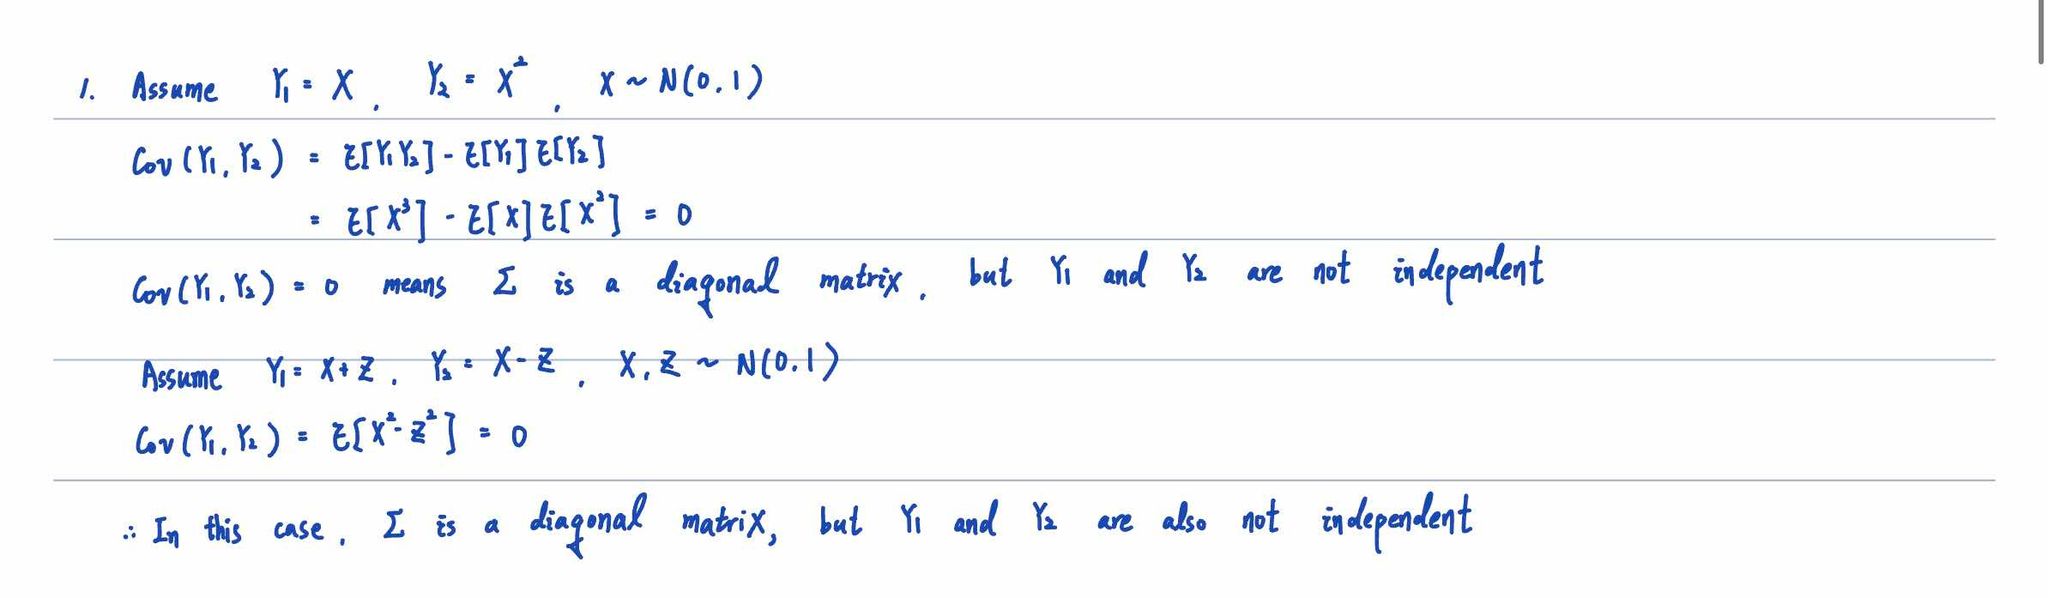 1. Assume Y₁ = X, Y₂ = X², X ~ N(0,1)
Cov(Y₁, Y₂) = E[Y₁Y₂] - E[Y₁]E[Y₂]
= E[X³] - E[X]E[X²] = 0
Cov(Y₁, Y₂) = 0 means Σ is a diagonal matrix, but Y₁ and Y₂ are not independent
Assume Y₁ = X+Z, Y₂ = X-Z, X, Z ~ N(0,1)
Cov(Y₁, Y₂) = E[X²-Z²] = 0
∴ In this case, Σ is a diagonal matrix, but Y₁ and Y₂ are also not independent